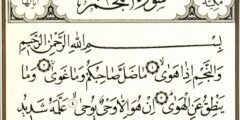 سورة النجم
بسم الله الرحمن الرحيم
والنجم إذا هوى ١ ما ضل صاحبكم وما غوى ٢ وما
ينطق عن الهوى ٣ إن هو إلا وحي يوحى ٤ علمه شديد